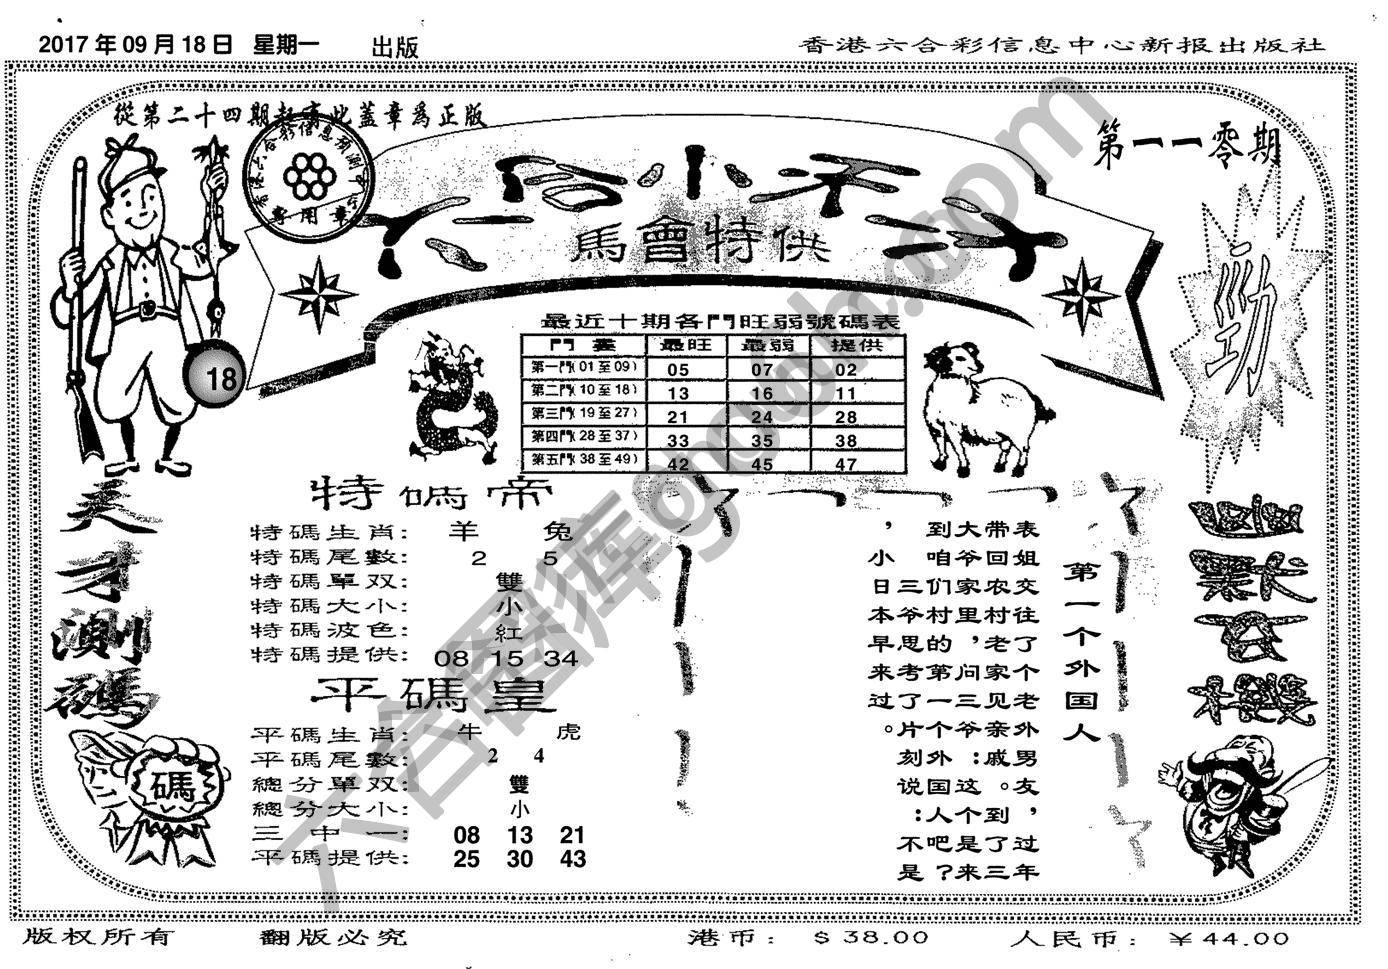 2017年09月18日 星期一 出版
香港六合彩信息中心新报出版社
從第二十四期起寄此蓋章爲正版
專用章
第一一零期
馬會特供
勁
18
最近十期各門旺弱號碼表
門數 最旺 最弱 提供
第一門(01至09) 05 07 02
第二門(10至18) 13 16 11
第三門(19至27) 21 24 28
第四門(28至37) 33 35 38
第五門(38至49) 42 45 47
天才測碼
碼
特碼帝
特碼生肖: 羊 兔
特碼尾數: 2 5
特碼單双: 雙
特碼大小: 小
特碼波色: 紅
特碼提供: 08 15 34
平碼皇
平碼生肖: 牛 虎
平碼尾數: 2 4
總分單双: 雙
總分大小: 小
三中一: 08 13 21
平碼提供: 25 30 43
第一个外国人
表姐交往了个老外男友，过年
带回农村老家见亲戚。到了三
大爷家里，问三爷：这个是来
到咱们村的第一个外国人吧？
，三爷思考了片刻说：不是
小日本早来过。
版权所有 翻版必究 港币：$38.00 人民币：¥44.00